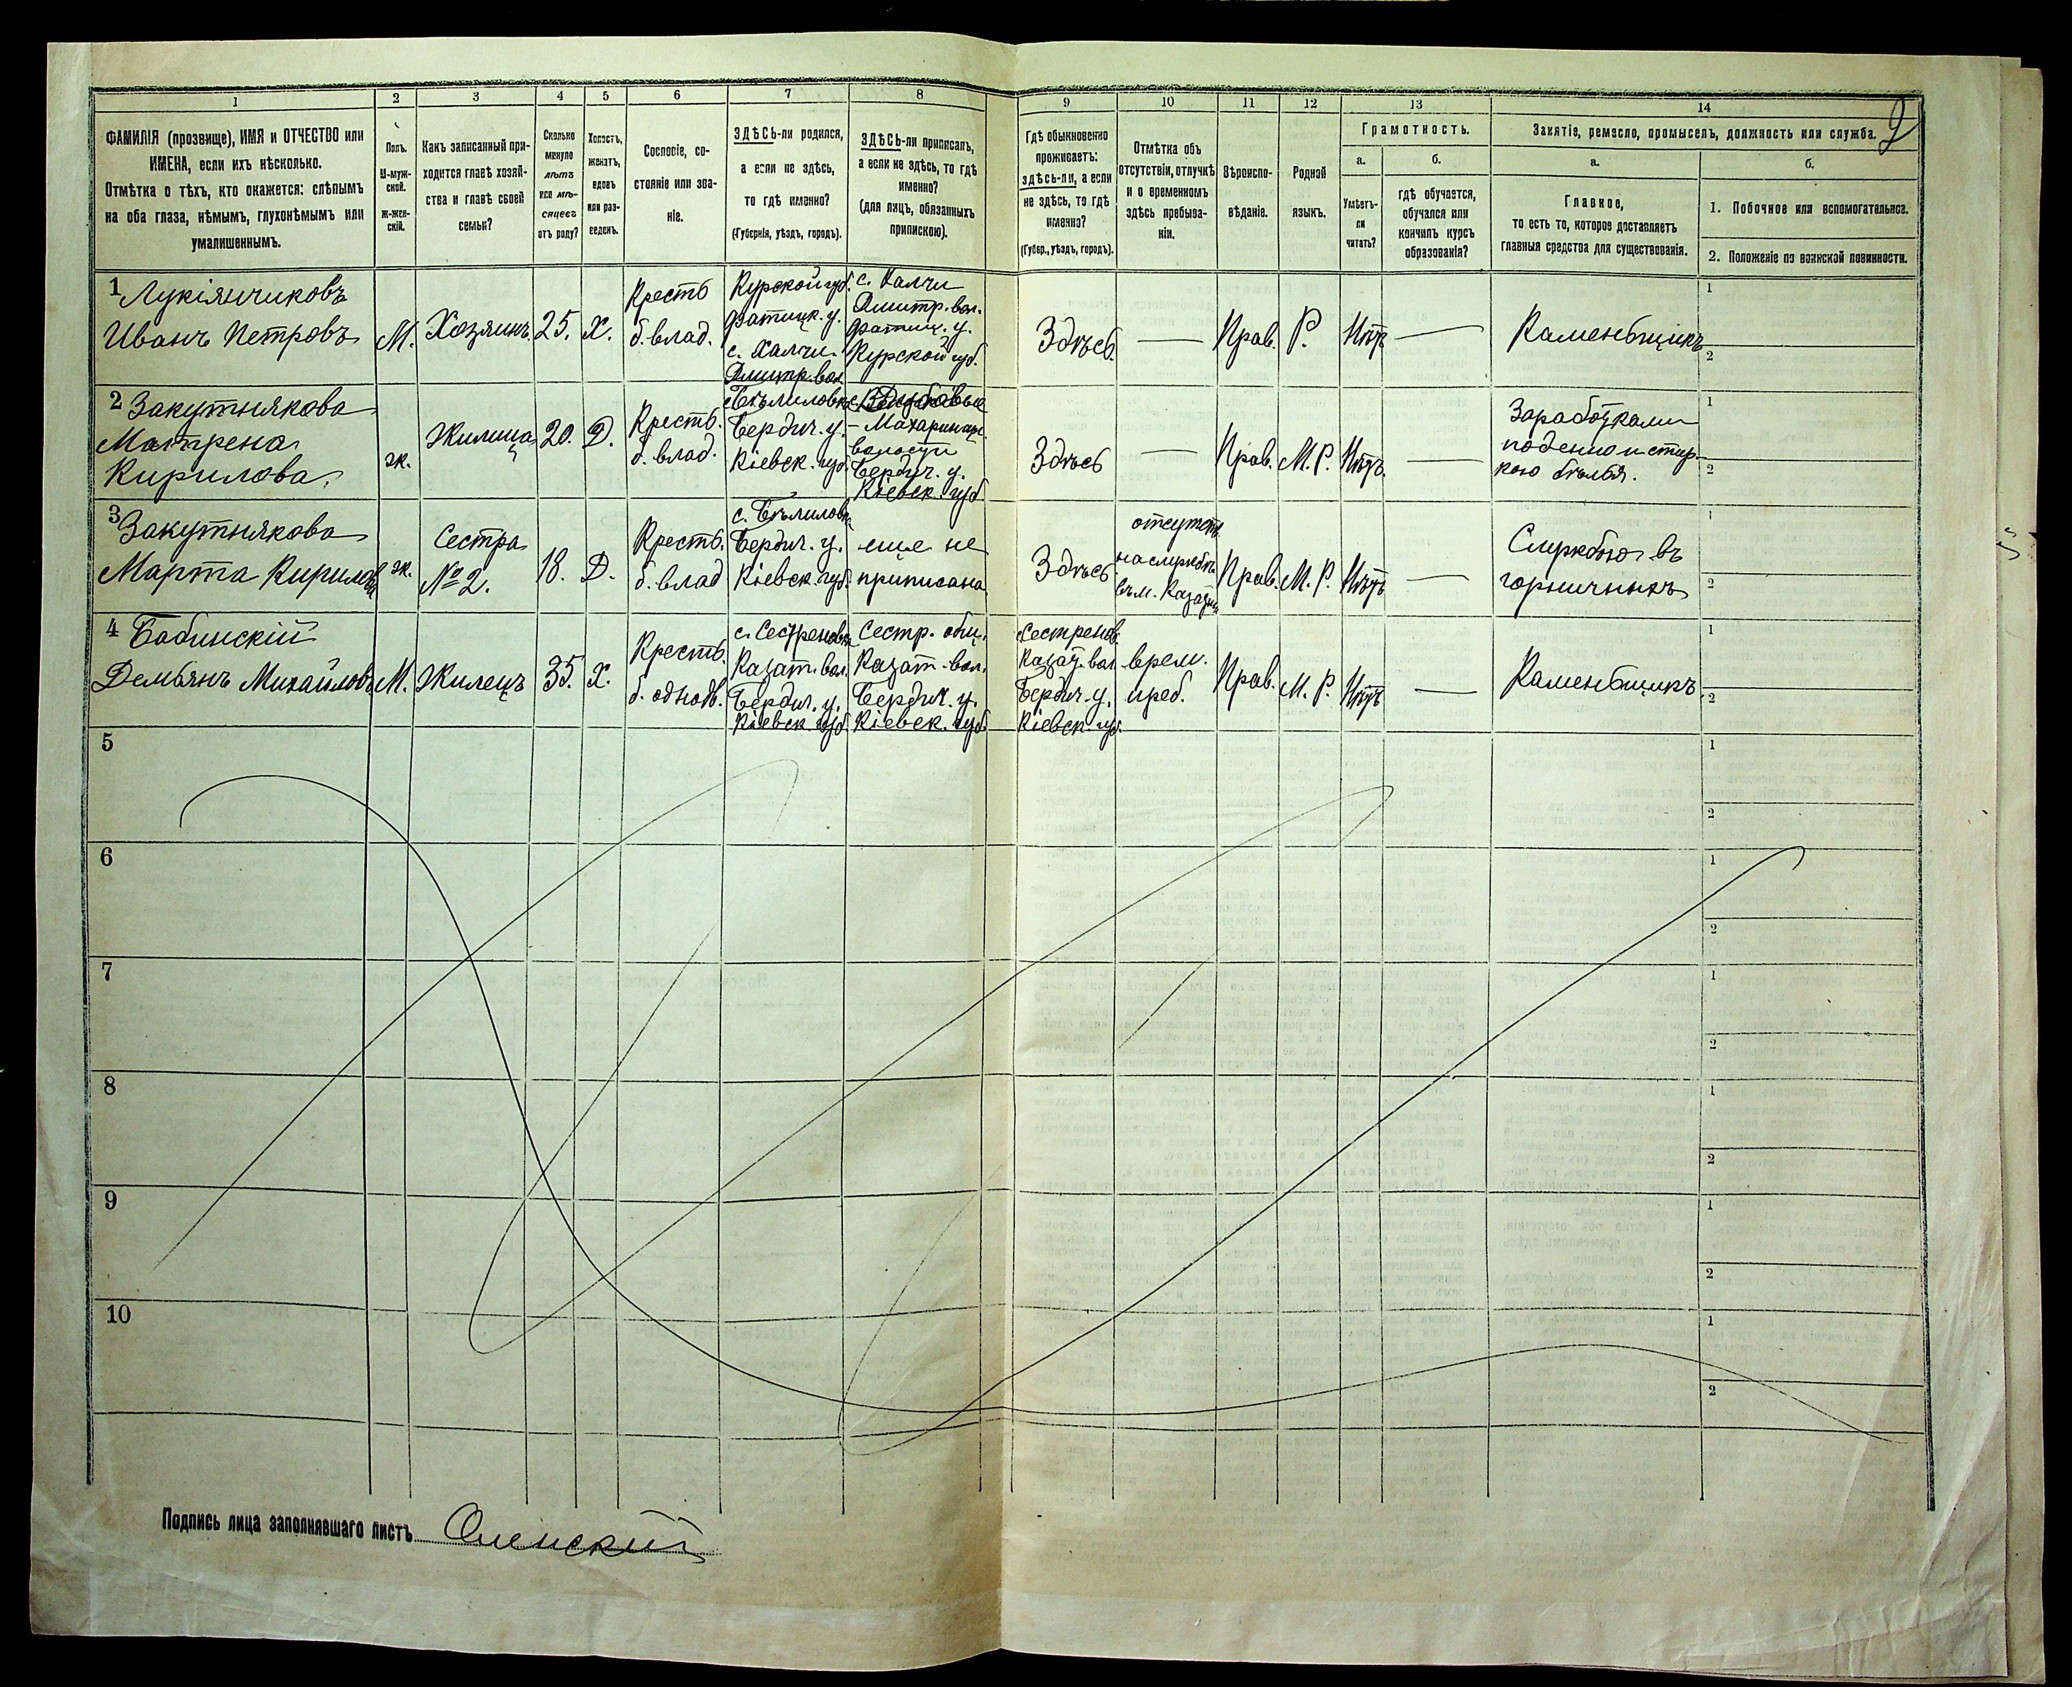 1 2 3 4 5 6 7 8 9 10 11 12 13 14
ФАМИЛІЯ (прозвище), ИМЯ и ОТЧЕСТВО или
ИМЕНА, если ихъ нѣсколько.
Отмѣтка о тѣхъ, кто окажется: слѣпымъ
на оба глаза, нѣмымъ, глухонѣмымъ или
умалишеннымъ.
Полъ.
М-муж-
ской.
Ж-жен-
скій.
Какъ записанный при-
ходится главѣ хозяй-
ства и главѣ своей
семьи?
Сколько
минуло
лѣтъ
или мѣ-
сяцевъ
отъ роду?
Холостъ,
женатъ,
вдовъ
или раз-
веденъ.
Сословіе, со-
стояніе или зва-
ніе.
ЗДѢСЬ-ли родился,
а если не здѣсь,
то гдѣ именно?
(Губернія, уѣздъ, городъ).
ЗДѢСЬ-ли приписанъ,
а если не здѣсь, то гдѣ
именно?
(для лицъ, обязанныхъ
припискою).
Гдѣ обыкновенно
проживаетъ:
здѣсь-ли, а если
не здѣсь, то гдѣ
именно?
(Губер., уѣздъ, городъ).
Отмѣтка объ
отсутствіи, отлучкѣ
и о временномъ
здѣсь пребыва-
ніи.
Вѣроиспо-
вѣданіе.
Родной
языкъ.
Грамотность.
а.
Умѣетъ-
ли
читать?
б.
гдѣ обучается,
обучался или
кончилъ курсъ
образованія?
Занятіе, ремесло, промыселъ, должность или служба.
а.
Главное,
то есть то, которое доставляетъ
главныя средства для существованія.
б.
1. Побочное или вспомогательное.
2. Положеніе по воинской повинности.
1 Лукіянчиковъ
Иванъ Петровъ
М.
Хозяинъ
25.
Х.
Крестъ
б. влад.
Курской губ.
Фатиж. у.
с. Халчи
Дмитр. вол.
с. Халчи
Дмитр. вол.
Фатиж. у.
Курской губ.
Здѣсь
—
Прав.
Р.
Нѣтъ
—
Каменьщикъ
1
2
2 Закутнякова
Матрена
Кирилова
ж.
Жилица
20.
Д.
Крестъ.
б. влад.
с. Бѣлиловка
Бердич. у.
Кіевск. губ.
Махаринец.
волости
Бердич. у.
Кіевск. губ
Здѣсь
—
Прав.
М. Р.
Нѣтъ
—
Заработками
поденно и стир-
кою бѣлья.
1
2
3 Закутнякова
Марта Кирилова
ж.
Сестра
№ 2.
18.
Д.
Крестъ.
б. влад
с. Бѣлиловка
Бердич. у.
Кіевск. губ.
еще не
приписана
Здѣсь
отсутств.
на службѣ
въ м.
Прав.
М. Р.
Нѣтъ
—
Службою въ
горничныхъ
1
2
4 Бабинскій
Демьянъ Михайловъ
М.
Жилецъ
35.
Х.
Крестъ.
б. однодв.
с. Сестреновка
Казат. вол.
Бердич. у.
Кіевск. губ.
Сестр. общ.
Казат. вол.
Бердич. у.
Кіевск. губ.
с. Сестренов.
Казат. вол.
Бердич. у.
Кіевск. губ.
врем.
преб.
Прав.
М. Р.
Нѣтъ
—
Каменьщикъ
1
2
5
1
2
6
1
2
7
1
2
8
1
2
9
1
2
10
1
2
Подпись лица заполнявшаго листъ